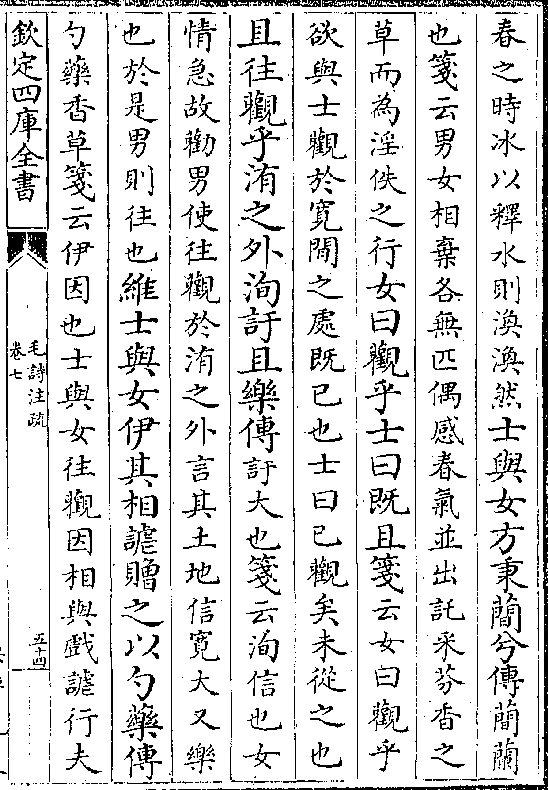 春之時冰以釋水則渙渙然士與女方秉蕑兮傳蕑蘭
也箋云男女相棄各無匹偶感春氣並出託采芬香之
草而為淫佚之行女曰觀乎士曰既且箋云女曰觀乎
欲與士觀於寛閒之處既已也士曰已觀矣未從之也
且往觀乎洧之外洵訏且樂傳訏大也箋云洵信也女
情急故勸男使往觀於洧之外言其土地信寛大又樂
也於是男則往也維士與女伊其相謔贈之以勺藥傳
勺藥香草箋云伊因也士與女往觀因相與戲謔行夫
欽定四庫全書
毛詩注疏
卷七
五十四